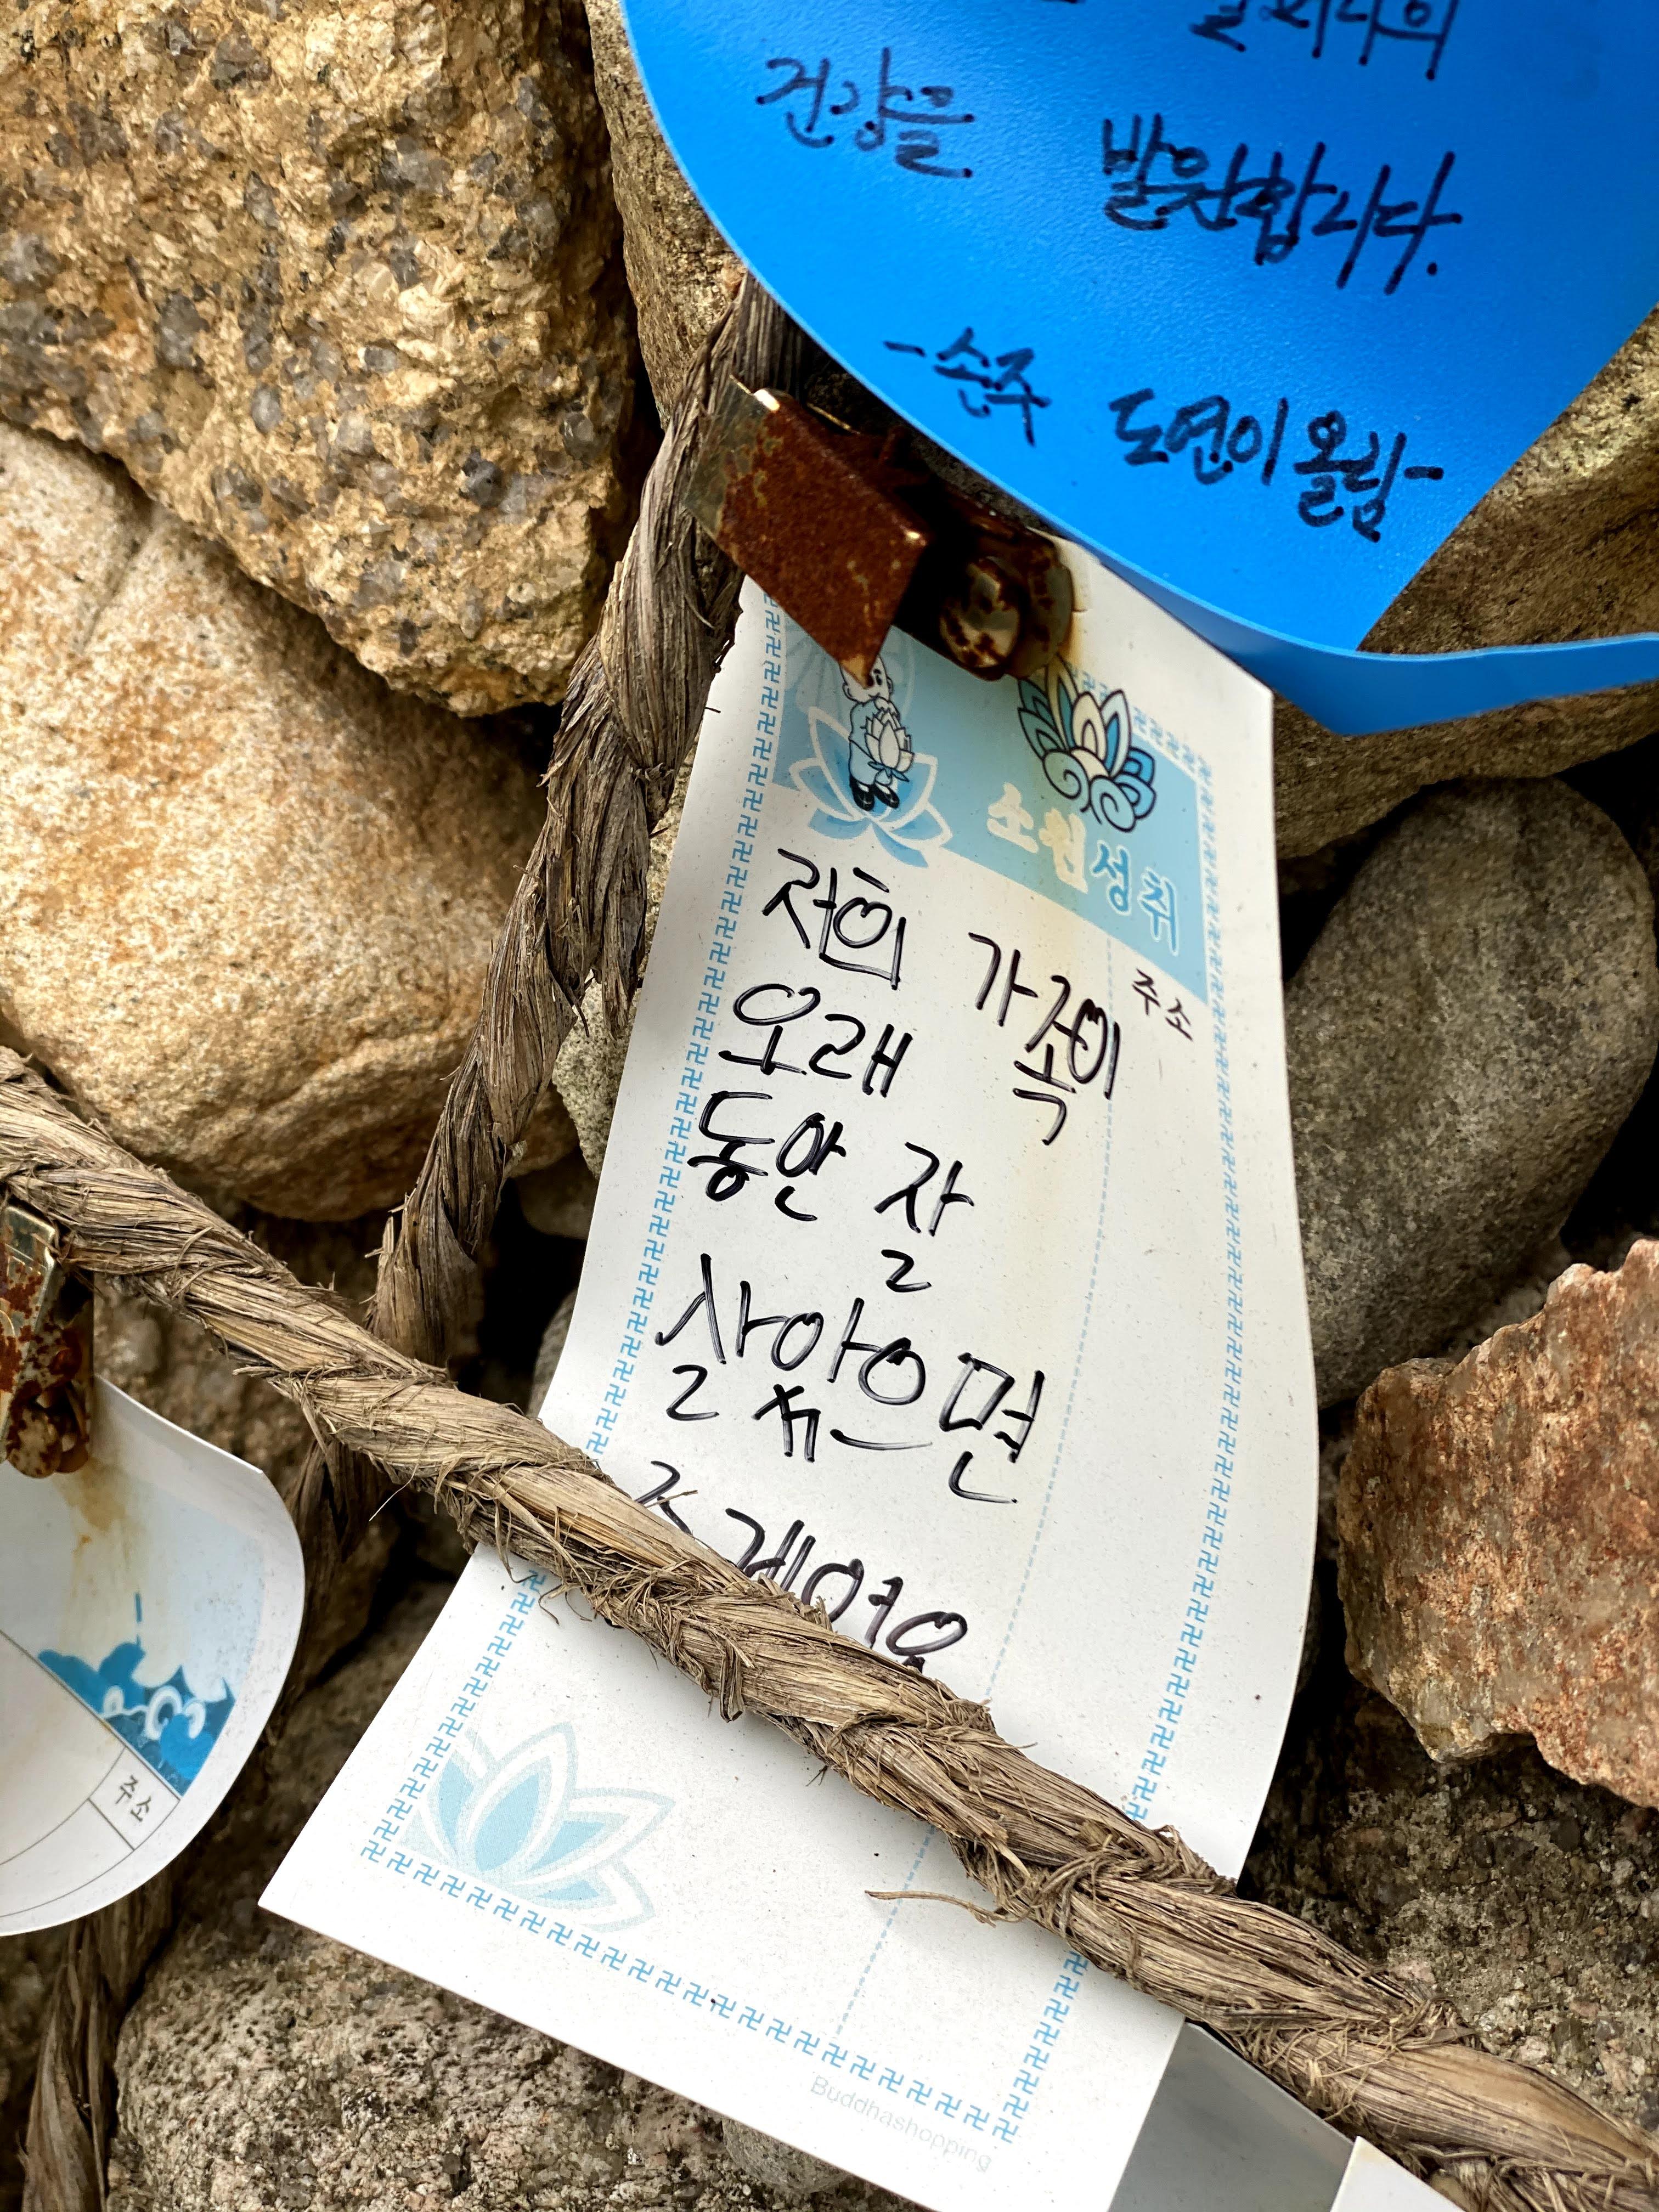 건강을 발원합니다.
-손주 도연이 올림-
소원성취
주소
저희 가족이
오래
동안 잘
살았으면
Buddhashopping
주소